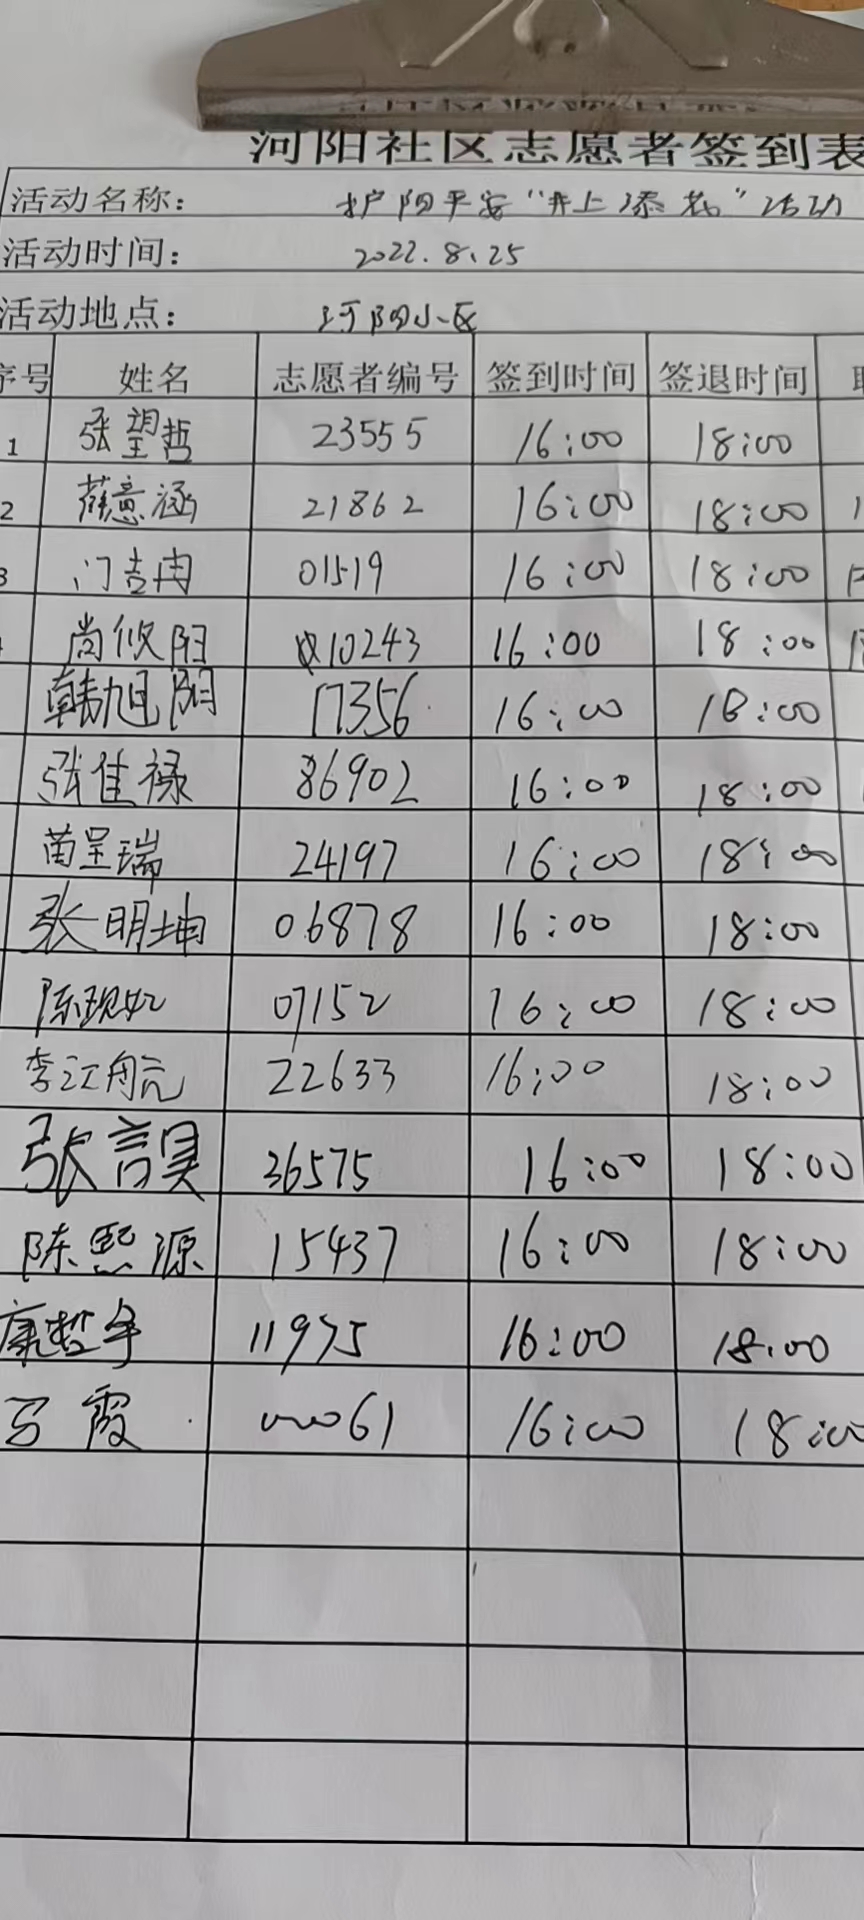 河阳社区志愿者签到表
活动名称： 护阳平安“井上添花”活动
活动时间： 2022.8.25
活动地点： 河阳小区
序号 姓名 志愿者编号 签到时间 签退时间
1 张望哲 23555 16:00 18:00
2 薛意涵 21862 16:00 18:00
3 门吉冉 01519 16:00 18:00
尚攸阳 10243 16:00 18:00
韩旭阳 17356 16:00 18:00
张佳禄 86902 16:00 18:00
苗呈瑞 24197 16:00 18:00
张明坤 06878 16:00 18:00
陈现如 07152 16:00 18:00
李江航 22633 16:00 18:00
张言昊 36575 16:00 18:00
陈熙源 15437 16:00 18:00
康哲宇 11975 16:00 18:00
马霞 00061 16:00 18:00